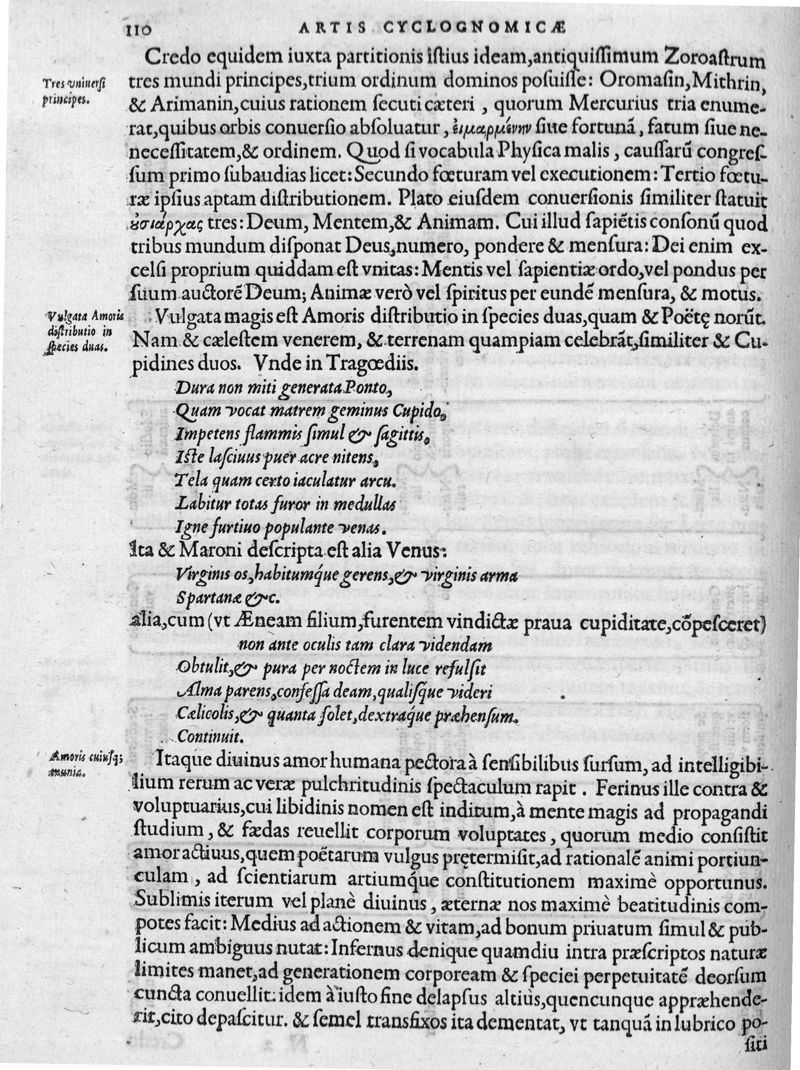 110 ARTIS CYCLOGNOMICÆ
Credo equidem iuxta partitionis iſtius ideam, antiquiſſimum Zoroaſtrum
Tres vniuerſi
principes.
tres mundi principes, trium ordinum dominos poſuiſſe: Oromaſin, Mithrin,
& Arimanin, cuius rationem ſecuti cæteri, quorum Mercurius tria enume-
rat, quibus orbis conuerſio abſoluatur, ἑιμαρμένην ſiue fortunã, fatum ſiue ne-
neceſſitatem, & ordinem. Quod ſi vocabula Phyſica malis, cauſſarũ congreſ-
ſum primo ſubaudias licet: Secundo fœturam vel executionem: Tertio fœtu-
ræ ipſius aptam diſtributionem. Plato eiuſdem conuerſionis ſimiliter ſtatuit
ȣσιάρχας tres: Deum, Mentem, & Animam. Cui illud ſapiẽtis conſonũ quod
tribus mundum diſponat Deus, numero, pondere & menſura: Dei enim ex-
celſi proprium quiddam eſt vnitas: Mentis vel ſapientiæ ordo, vel pondus per
ſuum auctorẽ Deum; Animæ verò vel ſpiritus per eundẽ menſura, & motus.
Vulgata Amoris
diſtributio in
ſpecies duas.
Vulgata magis eſt Amoris diſtributio in ſpecies duas, quam & Poëtę norũt.
Nam & cæleſtem venerem, & terrenam quampiam celebrãt, ſimiliter & Cu-
pidines duos. Vnde in Tragœdiis.
Dura non miti generata Ponto,
Quam vocat matrem geminus Cupido,
Impetens flammis ſimul & ſagittis,
Iſte laſciuus puer acre nitens,
Tela quam certo iaculatur arcu.
Labitur totas furor in medullas
Igne furtiuo populante venas.
Ita & Maroni deſcripta eſt alia Venus:
Virginis os, habitumq́ue gerens, & virginis arma
Spartanæ &c.
alia, cum (vt Æneam filium, furentem vindictæ praua cupiditate, cõpeſceret)
non ante oculis tam clara videndam
Obtulit, & pura per noctem in luce refulſit
Alma parens, confeſſa deam, qualiſque videri
Cælicolis, & quanta ſolet, dextraque præhenſum.
Continuit.
Amoris cuiuſq;
munia.
Itaque diuinus amor humana pectora à ſenſibilibus ſurſum, ad intelligibi-
lium rerum ac veræ pulchritudinis ſpectaculum rapit. Ferinus ille contra &
voluptuarius, cui libidinis nomen eſt inditum, à mente magis ad propagandi
ſtudium, & fædas reuellit corporum voluptates, quorum medio conſiſtit
amor actiuus, quem poëtarum vulgus prętermiſit, ad rationalẽ animi portiun-
culam, ad ſcientiarum artiumq́ue conſtitutionem maximè opportunus.
Sublimis iterum vel planè diuinus, æternæ nos maximè beatitudinis com-
potes facit: Medius ad actionem & vitam, ad bonum priuatum ſimul & pub-
licum ambiguus nutat: Infernus denique quamdiu intra præſcriptos naturæ
limites manet, ad generationem corpoream & ſpeciei perpetuitatẽ deorſum
cuncta conuellit: idem à iuſto fine delapſus altiùs, quencunque appræhende-
rit, cito depaſcitur. & ſemel transfixos ita dementat, vt tanquã in lubrico po-
ſiti